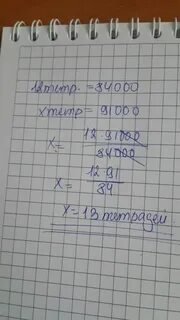 12тетр. = 84000
x тетр = 91000
x = 12·91000 / 84000
x = 12·91 / 84
x = 13 тетрадей.